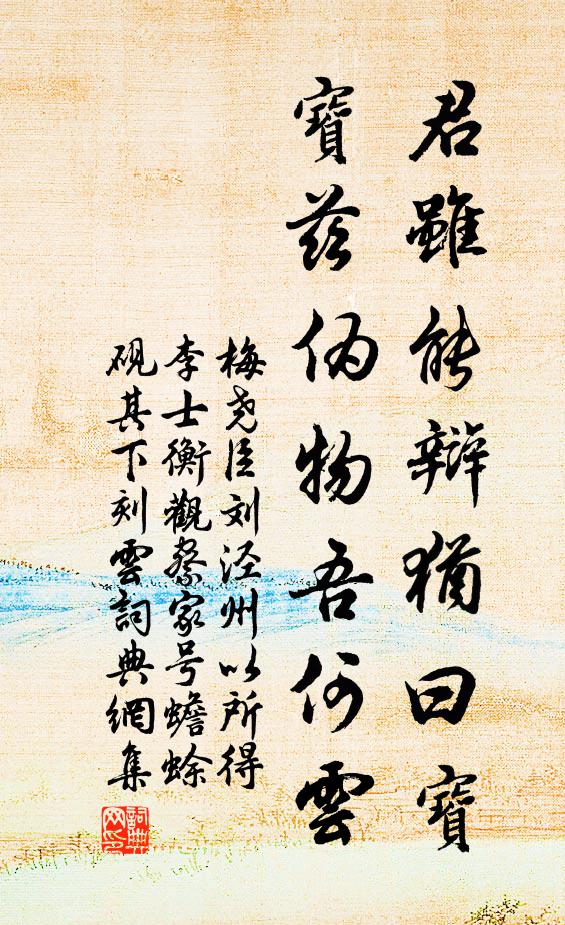 君雖能辯猶曰寶
寶茲偽物吾何雲
梅尧臣刘泾州以所得
李士衡觀察家号蟾蜍
硯其下刻雲詞典網集
詞典
网印